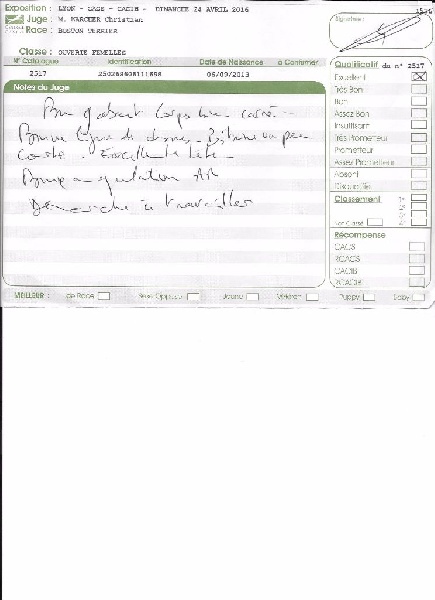 Exposition : LYON - CACS - CACIB - DIMANCHE 24 AVRIL 2016
Juge : M. KARCHER Christian
Race : BOSTON TERRIER
Signature :
Classe : OUVERTE FEMELLES
N° Catalogue Identification Date de Naissance à Confirmer
2517 250268608111898 06/09/2013
Notes du Juge
Bon gabarit Corps bien carré -
Bonne ligne de dessus. un peu
courte. Excellente tête
Bonne angulation AR
Démarche à travailler
Qualificatif du n° 2517
Excellent
Très Bon
Bon
Assez Bon
Insuffisant
Très Prometteur
Prometteur
Assez Prometteur
Absent
Disqualifié
Classement 1er
2e
3e
Non Classé 4e
Récompense
CACS
RCACS
CACIB
RCACIB
MEILLEUR : de Race Sexe Opposé Jeune Vétéran Puppy Baby